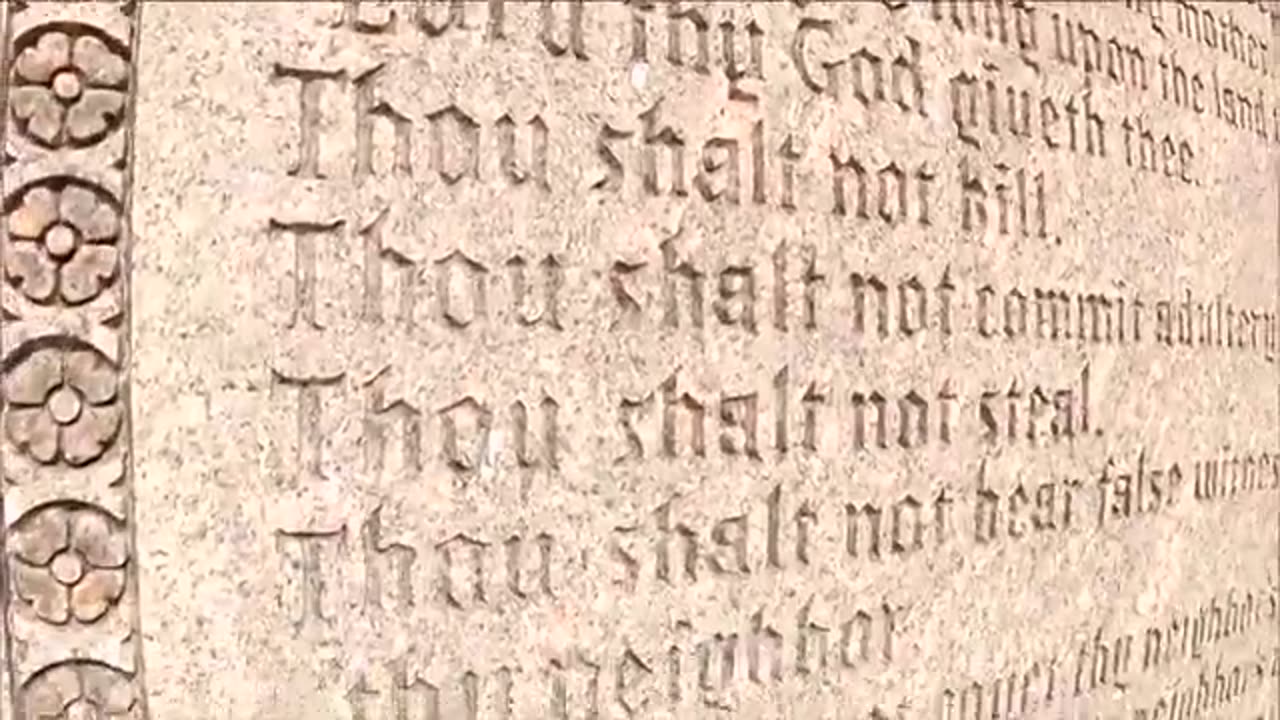 mother
long upon the land
Lord thy God giveth thee.
Thou shalt not kill.
Thou shalt not commit adultery
Thou shalt not steal.
Thou shalt not bear false witness
thy neighbor.
covet thy neighbor's
neighbor's